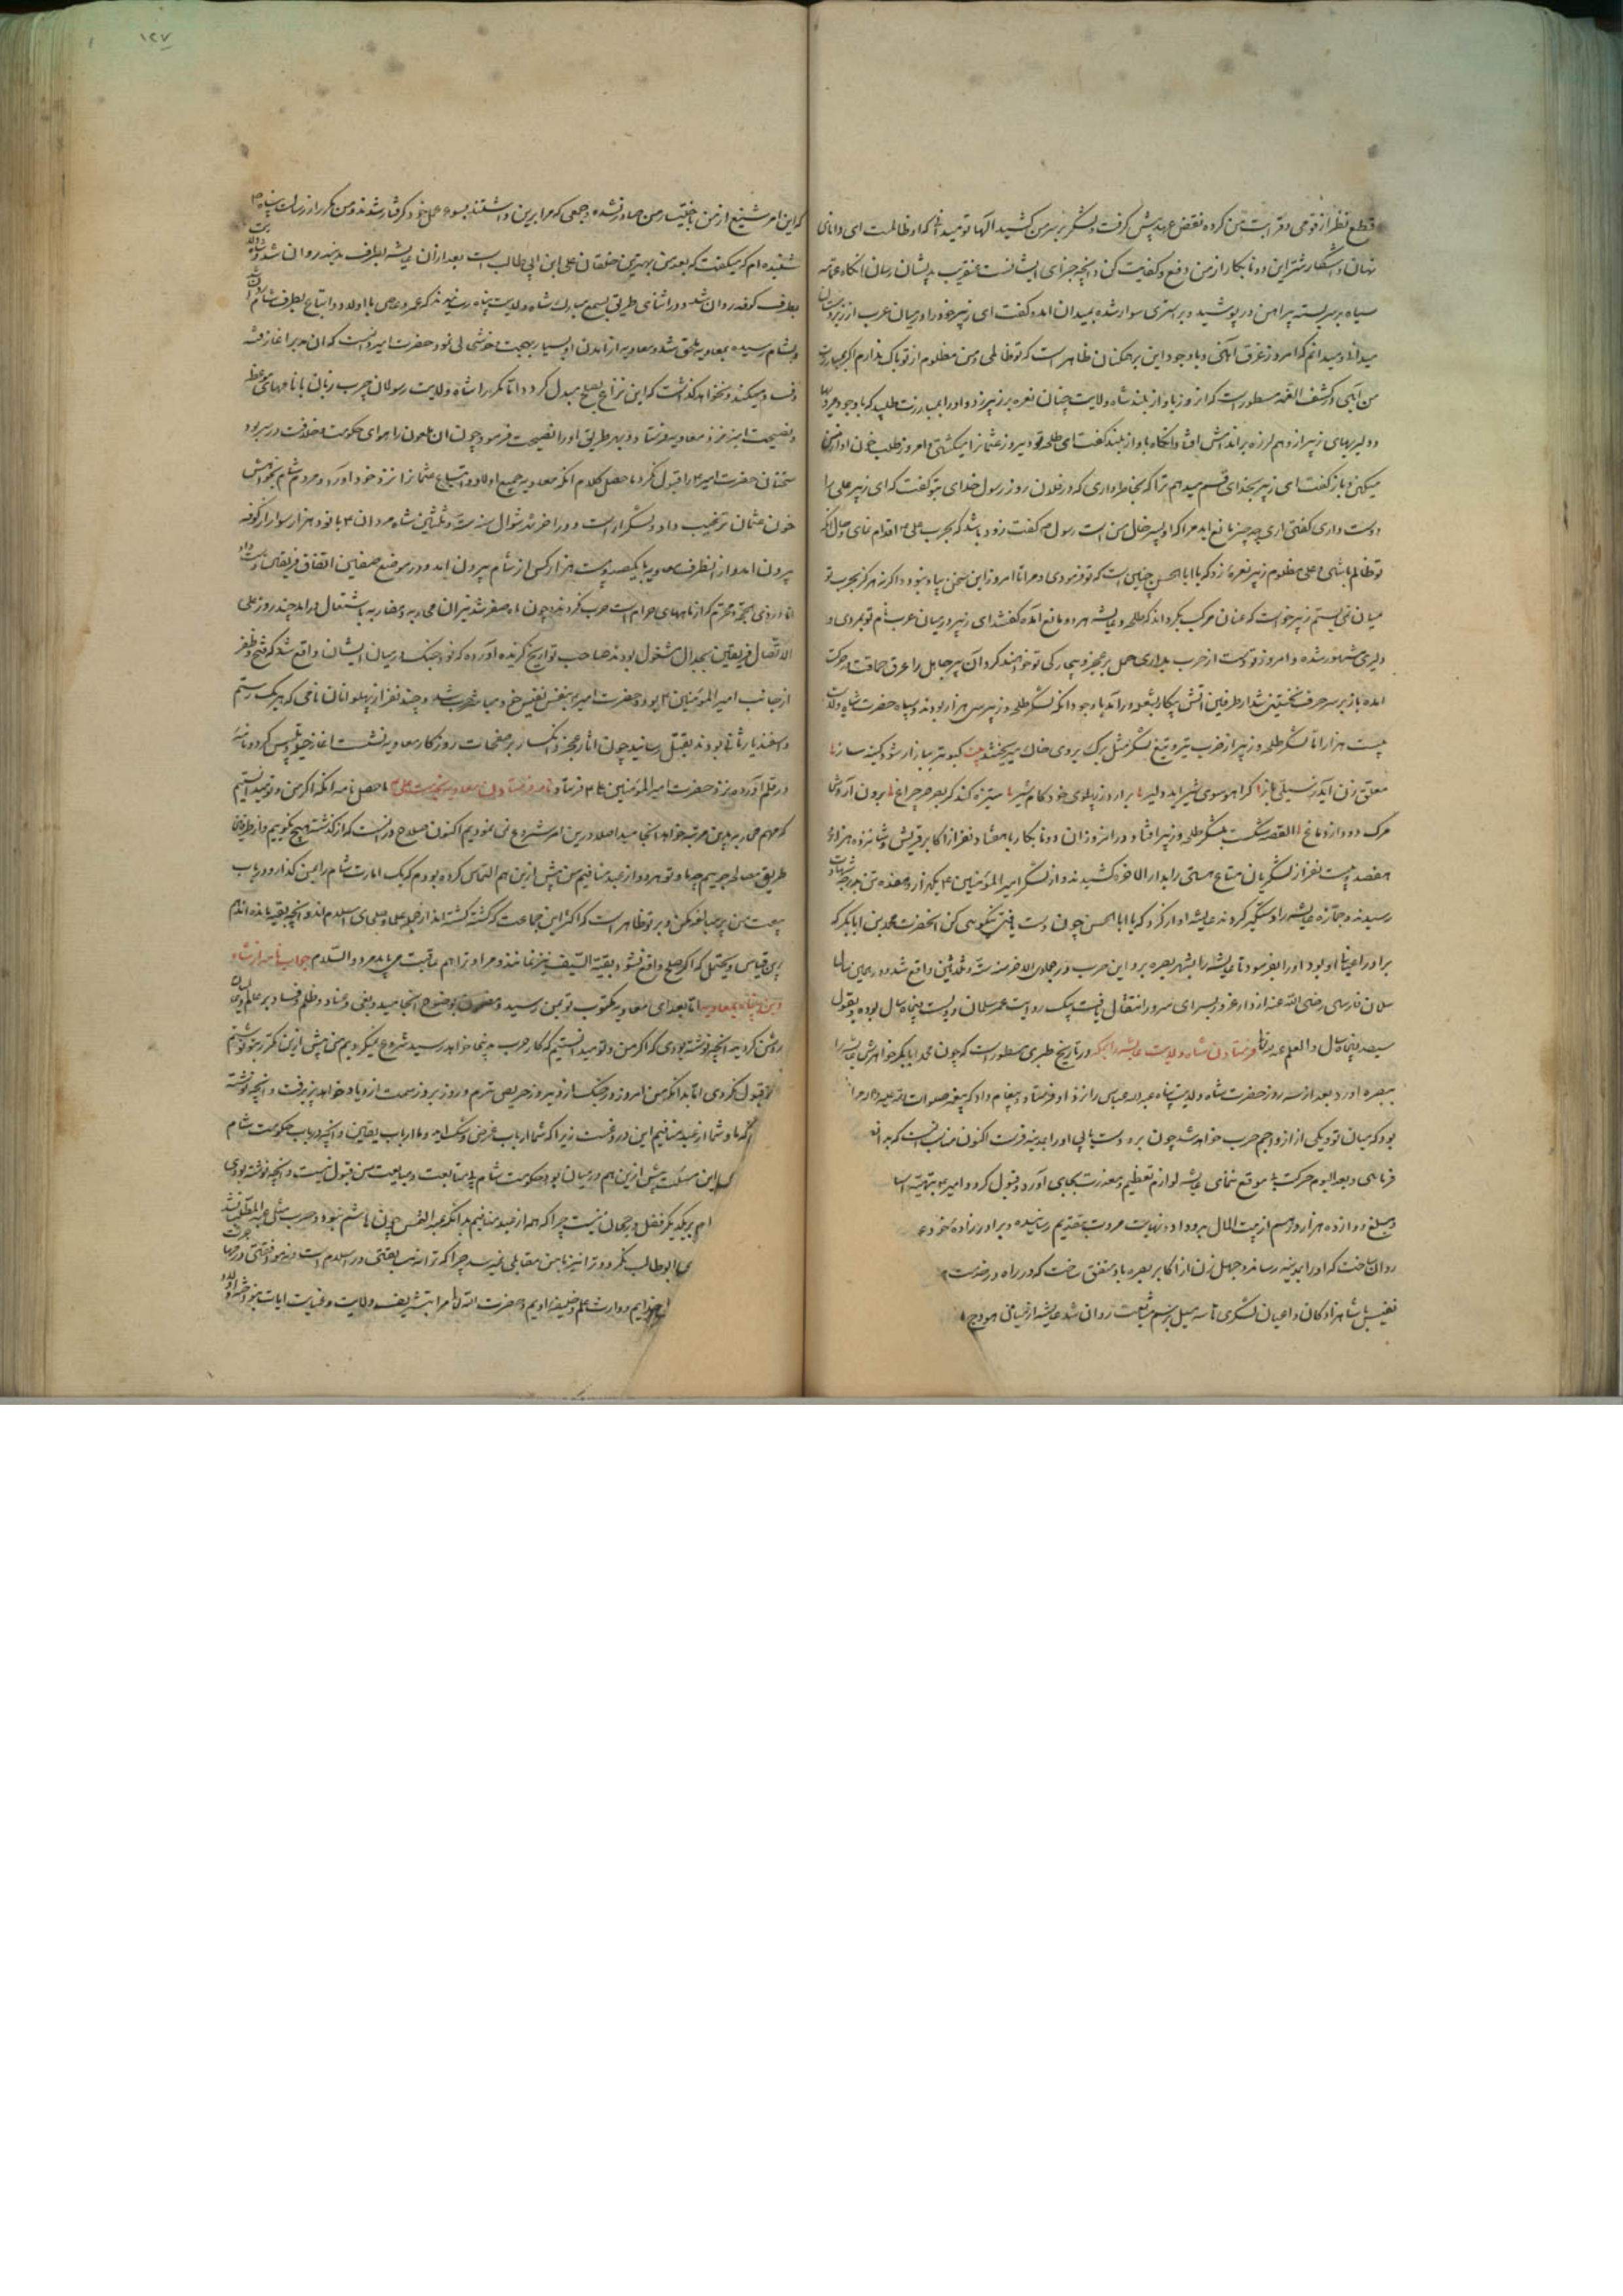 قطع نظر از قومی و قرابت من کرده نقض عهد پیش گرفت و لشکر بر سر من کشید الها تو میدانی که او ظالمست ای دانای
نهان و آشکار شر این دو نابکار از من دفع و کفایت کن و آنچه جزای ایشانست عنقریب بدیشان رسان انکاه عمامه
سیاه بر سر بسته پیراهن در پوشید و بر استری سوار شده بمیدان امده گفت ای زبیر خود را در میان عرب از
میدانی و میدانم که امروز غرق آهنی و با وجود این بر همکنان ظاهر است که تو ظالمی و من مظلوم از تو باک ندارم اگر بمبارزت
من آیی و در کشف الغمه مسطور است که انروز باواز بلند شاه ولایت چنان نعره بر زبیر زد و او را بمبارزت طلبید که با وجود
و دلیریهای زبیر از وهم لرزه بر اندامش افتاد انکاه باواز بلند گفت ای طلحه تو دیروز عثمانرا میکشتی و امروز طلب خون او از من
میکنی و باز گفت ای زبیر بخدای قسم میدهم ترا که بخاطر داری که در فلان روز رسول خدای بتو گفت که ای زبیر علی را
دوست داری گفتی اری چه چیز مانع اید مرا که او پسر خال من است رسول ص گفت زود باشد که بحرب علی اقدام نمای و حال انکه
تو ظالم باشی و علی مظلوم زبیر نعره زد که یا ابا الحسن چنین است که تو فرمودی و مرا تا امروز این سخن بیاد نبود و اگر نه هرگز بحرب تو
میان نمی بستم زبیر خواست که عنان مرکب بگرداند که طلحه و عایشه هر دو مانع آمده گفتند ای زبیر در میان عرب نام تو بمردی و
دلیری مشهور شده و امروز تو دست از حرب بداری حمل بر عجز و بیچارکی تو خواهند کرد آن پیر جاهل را عرق حماقت در حرکت
امده باز بر سر حرف نخستین شد از طرفین اتش پیکار بشعله درآمد با وجود انکه لشکر طلحه و زبیر سی هزار بودند و سپاه حضرت شاه ولایت
بیست هزار اما لشکر طلحه و زبیر از ضرب تیر و تیغ لشکر مثل برک بروی خاک میریختند بیت کبوتر بباز ار شود کینه ساز
معلق زن اید ز سیلی باز اکر اهو سوی شیر اید دلیر بر ارد ز پهلوی خود کام شیر ستیزه کند کر بصرصر چراغ برون ارد
مرک دود از دماغ القصه شکست بلشکر طلحه و زبیر افتاد و در انروز ان دو نابکار با هفتاد نفر از اکابر قریش و شانزده هزار و
هفصد و بیست نفر از لشکریان متاع هستی را بدار الاخره کشیدند و از لشکر امیر المؤمنین ع یکهزار و هفده تن بدرجه شهادت
رسیدند و جمازه عایشه را دستگیر کردند عایشه اواز کرد که یا ابا الحسن چون دست یافتی نیکویی کن انحضرت محمد بن ابابکر که
برادر اعیانی او بود او را بفرمود تا عایشه را بشهر بصره برد و این حرب در جمادی الاخر سنه ست و ثلثین واقع شد و در همین سال
سلمان فارسی رضی الله عنه از دار غرور بسرای سرور انتقال یافت بیک روایت عمر سلمان دویست پنجاه سال بوده و بقول
سیصد پنجاه سال والعلم عند الله فرستادن شاه ولایت عایشه را بمکه در تاریخ طبری مسطور است که چون محمد ابابکر خواهرش عایشه را
ببصره اورد بعد از سه روز حضرت شاه ولایت پناه عبد الله عباس را نزد او فرستاد و پیغام داد که پیغمبر صلوات الله علیه و اله مرا
بود که میان تو و یکی از ازواجم حرب خواهد شد چون برو دست یابی او را بمدینه فرست اکنون مناسب انست که
فرمایی و بعد الیوم حرکت بی موقع ننمای عایشه لوازم تعظیم و معذرت بجای آورد و قبول کرد و امیر ع
و مبلغ دوازده هزار درهم از بیت المال برو داد و نهایت مروت بتقدیم رسانیده و برادر زاده خود
روان ساخت که او را بمدینه رساند و چهل زن از اکابر بصره باو متفق ساخت که در راه در خدمت
نفیس با شاهزادکان و اعیان لشکری تا سه میل برسم مشایعت روان شد عایشه از میان هودج
۱۲۷
که این امر شنیع از من باختیار من صادر نشده و جمعی که مرا برین داشتند بسوء عمل خود کرفتار شدند و من مکرر از رسالت پناه ص
شنیده ام که میگفت که بعد من بهترین خلقان علی ابن ابی طالب است بعد ازان عایشه بطرف مدینه روان شد و شاه ولایت
بطرف کوفه روان شد و در اثنای طریق بسمع مبارک شاه ولایت پناه رسانیدند که عمرو عاص با اولاد و اتباع بطرف شام روان
و بشام رسیده بمعاویه ملحق شد و معاویه از آمدن او بسیار بهجت و خوشحالی نمود حضرت امیر دانست که ان مدبر اغاز فتنه
و فساد میکند و نخواهد گذاشت که این نزاع بصلح مبدل گردد اما مکرر شاه ولایت رسولان چرب زبان با نامهای موعظه
و نصیحت امیز نزد معاویه فرستاد و بهر طریق او را نصیحت فرمود و چون ان ملعون را هوای حکومت و خلافت در سر بود
سخنان حضرت امیر ع را قبول نکرد ما حصل کلام انکه معاویه جمیع اولاد و اتباع عثمانرا نزد خود اورد و مردم شام بخواهش
خون عثمان ترغیب داد و لشکر اراست و در اخر شهر شوال سنه ست و ثلثین شاه مردان ع با نود هزار سوار از کوفه
بیرون امد و از انطرف معاویه با یکصد و بیست هزار کس از شام بیرون امد و در موضع صفین اتفاق فریقین دست داد
اما در ذی الحجه و محرم که از ماههای حرام است حرب نکردند و چون ماه صفر شد نیران محاربه و مضاربه باشتعال درامد چند روز علی
الاتصال فریقین بجدال مشغول بودند صاحب تواریخ گزیده آورده که نود جنک در میان ایشان واقع شد که فتح و ظفر
از جانب امیر المؤمنین ع بود و حضرت امیر ع بنفس نفیس خود مباشر حرب شد و چند نفر از پهلوانان نامی که هر یک رستم
و اسفندیار ثانی بودند بقتل رسانید چون اثار عجز و انکسار بر صفحات روزگار معاویه نشست اغاز حیله و تلبیس کرد و نامه
در قلم آورده نزد حضرت امیر المؤمنین ع فرستاد نامه فرستادن معاویه بحضرت علی ع ما حصل نامه انکه اکر من و تو میدانستیم
که مهم محاربه بدین مرتبه خواهد انجامید اصلا درین امر شروع نمی نمودیم اکنون صلاح در انست که از گذشته هیچ نگوییم و از
طریق مصالحه جوییم چه ما و تو هر دو از عبد منافیم من پیش ازین هم التماس کرده بودم که یک امارت شام را بمن کذار و در باب
بیعت من مبالغه مکن و بر تو ظاهر است که اکثر این جماعت که کشته کشته اند از جمله علما و صلحای اسلام اند و انچه بقیه مانده اند هم
برین قیاس و یحتمل که اکر صلح واقع نشود بقیة السیف نیز نمانند و مرا و ترا هم عاقبت می باید مرد والسلام جواب نامه از شاه
دین پناه بمعاویه اما بعد ای معاویه مکتوب تو بمن رسید و مضمون بوضوح انجامید و بغی و عناد و ظلم و فساد بر عالمیان
روشن کردید انچه نوشته بودی که اکر من و تو میدانستیم که کار حرب بدینجا خواهد رسید شروع نمیکردیم من پیش ازین مکرر بتو نوشتم
قبول نکردی اما بدانکه من امروز در جنک از دیروز حریص ترم و روز بروز سمت ازدیاد خواهد پذیرفت و انچه نوشته
که ما و شما از عبد منافیم این دروغست زیرا که شما ارباب غرض و شک اید و ما ارباب یقین و انچه در باب حکومت شام
این مسئلت پیش ازین هم در میان بود حکومت شام بی متابعت و مبایعت من قبول نیست و انچه نوشته بودی
بر یکدیگر فضل و رجحان نیست چرا که همه از عبد منافیم بدانکه عبد الشمس چون هاشم نبود و حرب مثل عبد المطلب نشد
ابو طالب نکردد و ترا نیز با من مقابلی نمیرسد چرا که ترا نه سبقتی در اسلام است و نه موافقتی در
و وارث علم و خلیفه اویم و حضرت الله تعالی مرا بتشریف ولایت و عنایت ایات